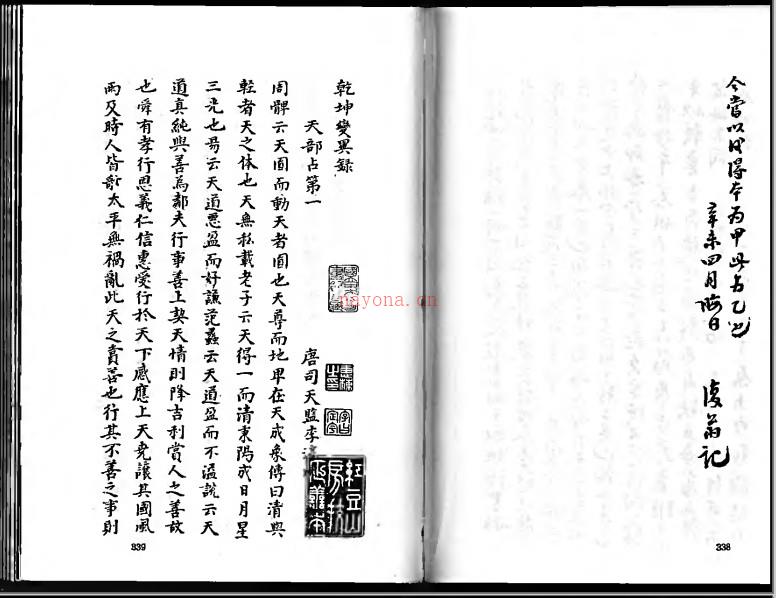 今嘗以後得本为甲此为乙也
辛未四月晦日
復翁记
338
乾坤變異録
天部占第一
唐司天監李淳
周髀云天圓而動天者圓也天尊而地卑在天成象傳曰清與
輕者天之体也天無私載老子云天得一而清東陽成日月星
三光也易云天道惡盈而好謙范蠡云天道盈而不溢説云天
道真純與善為鄰夫行事善上契天情則降吉利賞人之善故
也舜有孝行思義仁信惠愛行於天下感應上天堯讓其國風
雨及時人皆歌太平無禍亂此天之賞善也行其不善之事則
339
nayona.cn